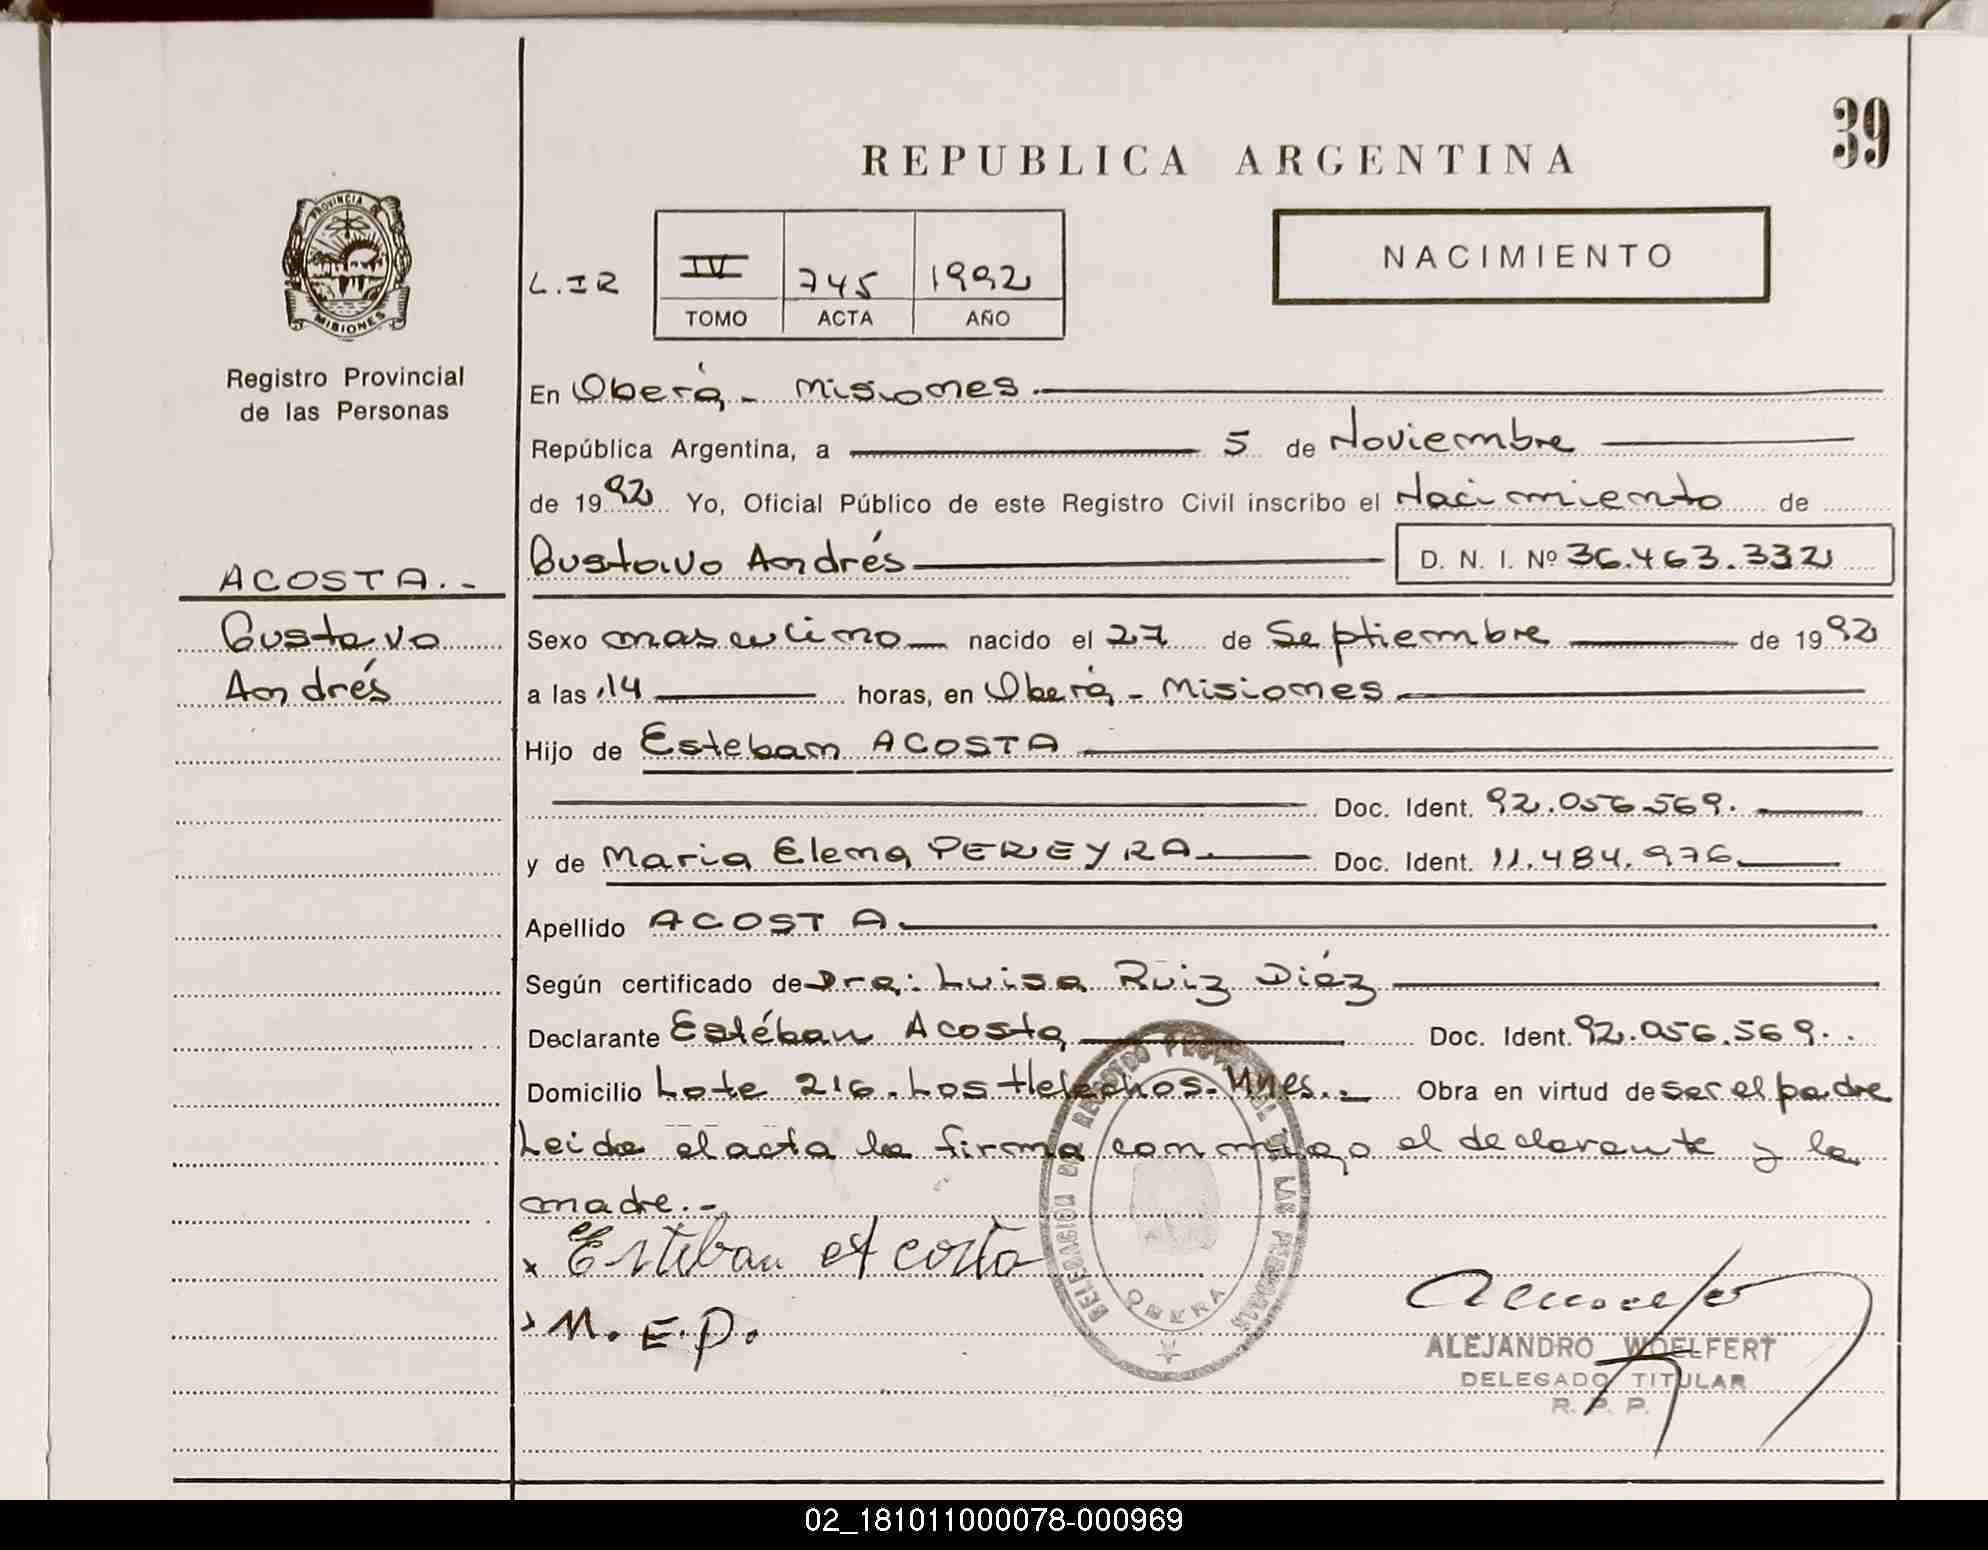 39
REPUBLICA ARGENTINA
PROVINCIA DE
MISIONES
Registro Provincial
de las Personas
L.I2 IV 745 1992
TOMO ACTA AÑO
NACIMIENTO
En Oberá - Misiones.
República Argentina, a 5 de Noviembre
de 1992 Yo, Oficial Público de este Registro Civil inscribo el Nacimiento de
Gustavo Andrés D. N. I. Nº 36.463.332
ACOSTA.-
Gustavo
Andrés
Sexo masculino nacido el 27 de Septiembre de 1992
a las 14 horas, en Oberá - Misiones
Hijo de Esteban ACOSTA
Doc. Ident. 92.056.569.
y de Maria Elena PEREYRA Doc. Ident. 11.484.976
Apellido ACOSTA
Según certificado de Dra: Luisa Ruiz Diéz
Declarante Estéban Acosta Doc. Ident. 92.056.569.
Domicilio Lote 216. Los Helechos. Mnes.- Obra en virtud de ser el padre
Leida el acta la firma conmigo el declarante y la
madre.-
x Esteban Acosta
M. E. P.
DELEGACION DEL REGISTRO PROVINCIAL DE LAS PERSONAS
OBERA
ALEJANDRO WOELFERT
DELEGADO TITULAR
R. P. P.
02_181011000078-000969